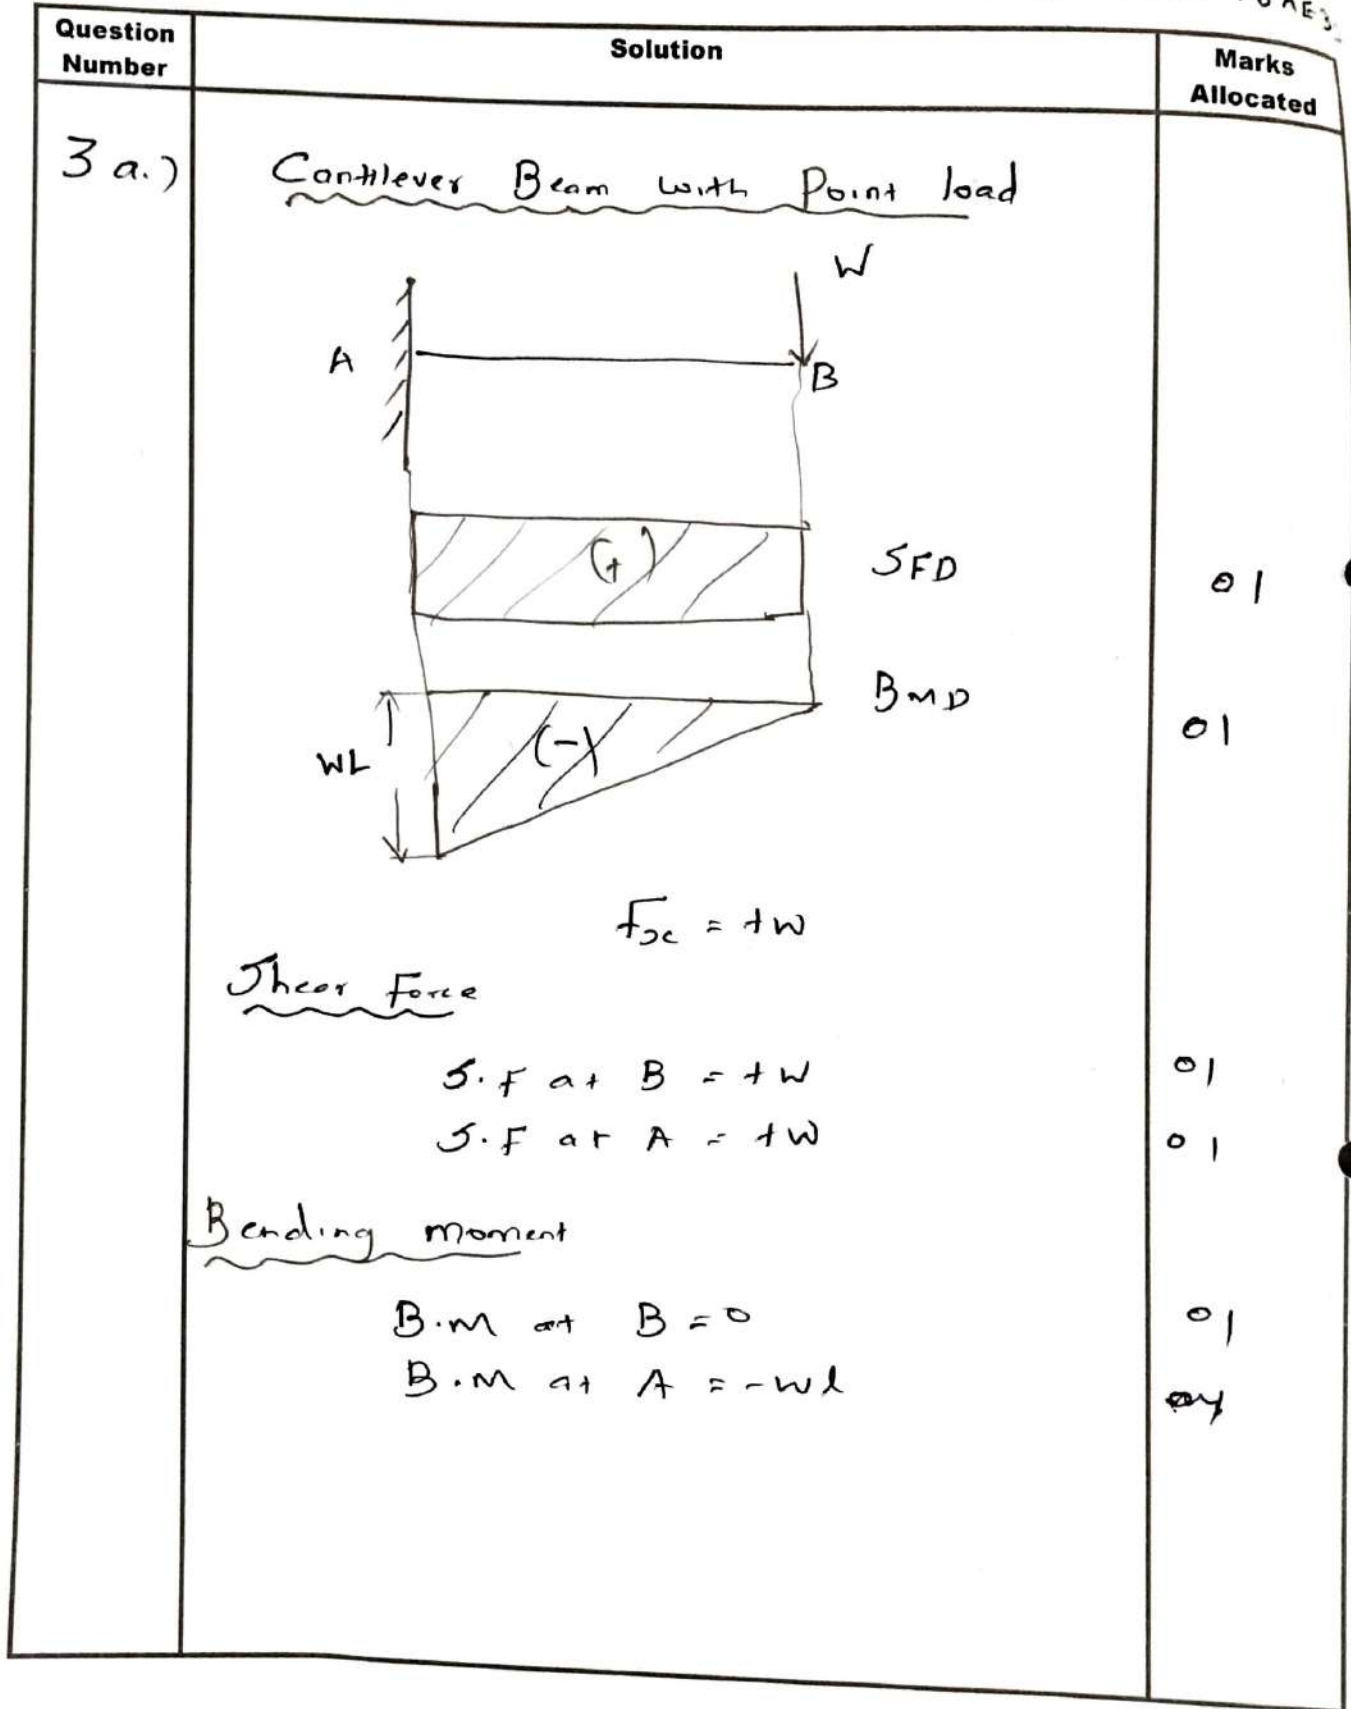 Question Number
Solution
Marks Allocated
3 a.)
Cantilever Beam with Point load
W
A
B
(+)
SFD
01
BMD
01
WL
(-)
Fx = +W
Shear Force
S.F at B = +W
01
S.F at A = +W
01
Bending moment
B.M at B = 0
01
B.M at A = -wl